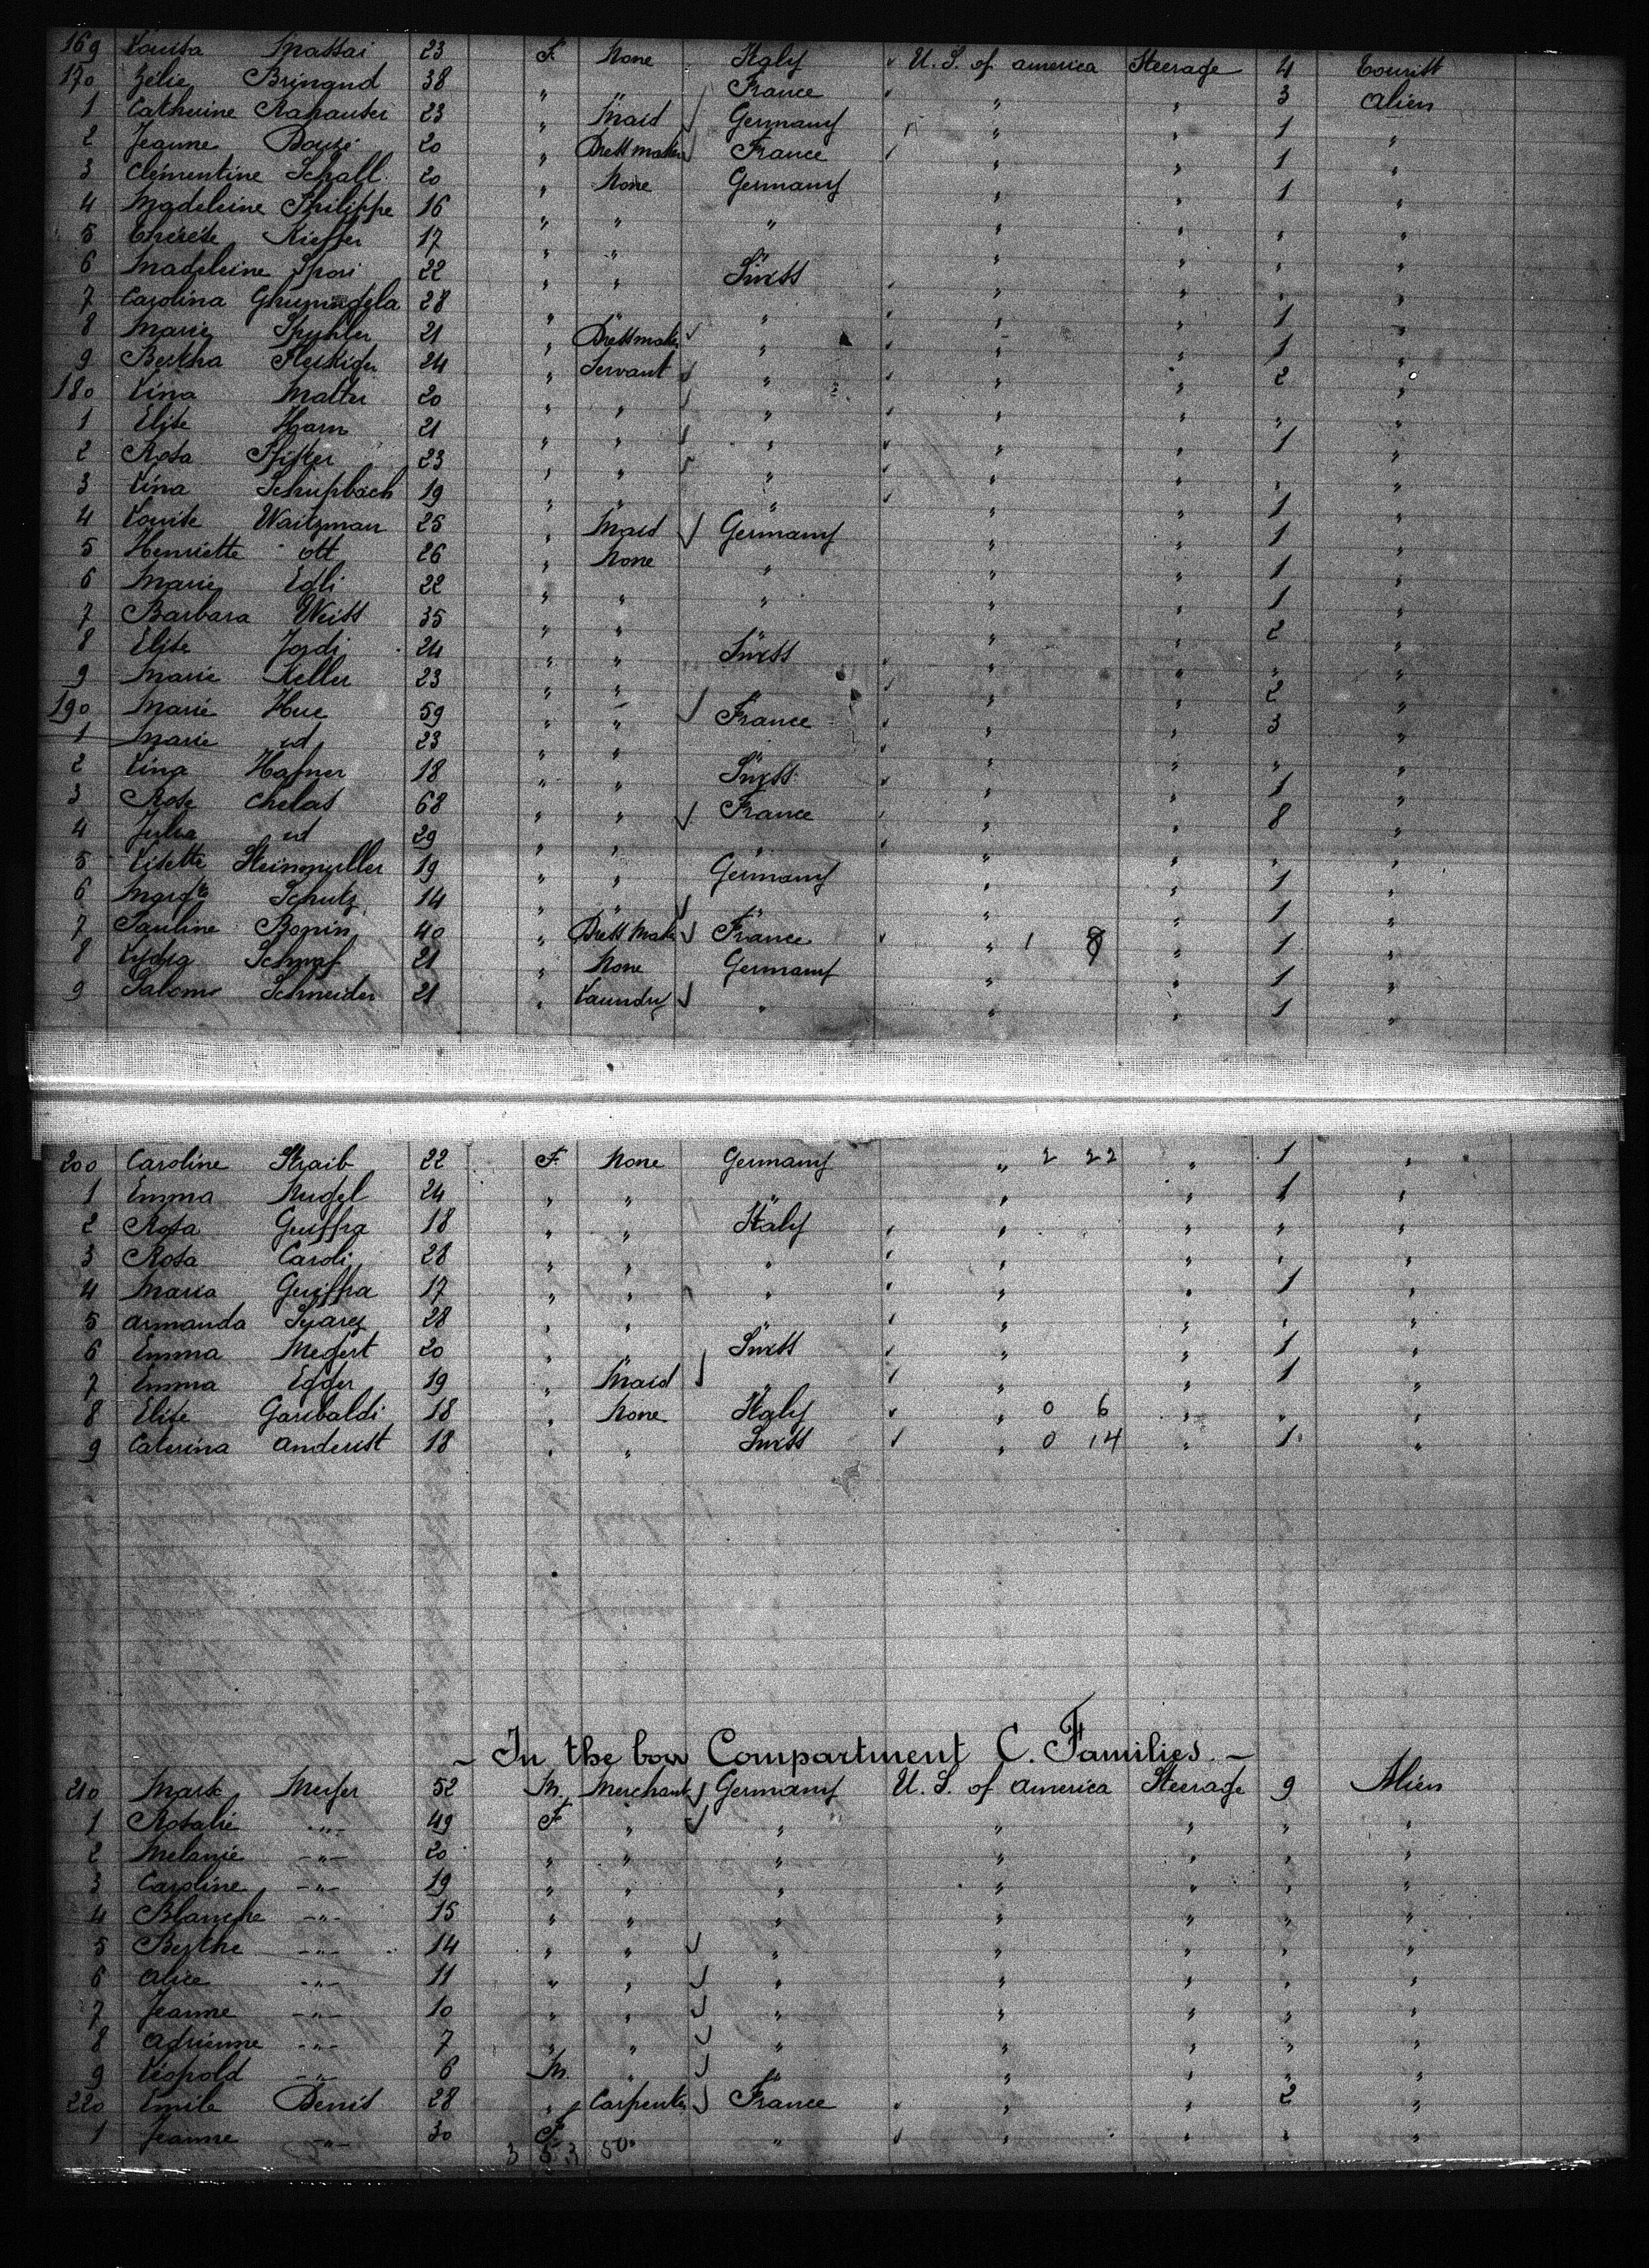 169 Louisa Massai 23 F. None Italy U. S. of america Steerage 4 Tourist
170 Zélie Bringud 38 " " France " " 3 Alien
1 Catherine 23 " Maid Germany " " 1 "
2 Jeanne 20 " Dressmaker France " " 1 "
3 Clémentine Schall 20 " None Germany " " 1 "
4 Madeleine Philippe 16 " " " " " " "
5 Kieffer 17 " " " " " " "
6 Madeleine Spori 22 " " Swiss " " " "
7 Carolina 28 " " " " " 1 "
8 Marie Spuhler 21 " Dressmaker " " " 1 "
9 Bertha Fluckiger 24 " Servant " " " 2 "
180 Lina Matter 20 " " " " " " "
1 Elise Ham 21 " " " " " 1 "
2 Rosa Pfister 23 " " " " " " "
3 Lina Schupbach 19 " " " " " 1 "
4 Louise Waitzman 25 " Maid Germany " " 1 "
5 Henriette ott 26 " None " " " 1 "
6 Marie Egli 22 " " " " " 1 "
7 Barbara Weiss 35 " " " " " 2 "
8 Elise Jordi 24 " " Swiss " " " "
9 Marie Keller 23 " " " " " 2 "
190 Marie Hue 59 " " France " " 3 "
1 Marie id 23 " " " " " " "
2 Lina Hafner 18 " " Swiss " " 1 "
3 Rose Chelas 68 " " France " " 8 "
4 Julia id 29 " " " " " " "
5 Lisette Steinmuller 19 " " Germany " " 1 "
6 Margte Schutz 14 " " " " " 1 "
7 Pauline Bonin 40 " Dress Maker France " 1 8 " 1 "
8 Lydia 21 " None Germany " " 1 "
9 Salome Schneider 21 " Laundry " " " 1 "
200 Caroline Straib 22 F. None Germany " 2 22 " 1 "
1 Emma Nugel 24 " " " " " 1 "
2 Rosa Guiffra 18 " " Italy " " " "
3 Rosa Caroli 28 " " " " " " "
4 Maria Guiffra 17 " " " " " 1 "
5 Armanda Suarez 28 " " " " " " "
6 Emma Megert 20 " " Swiss " " 1 "
7 Emma Egger 19 " Maid " " " 1 "
8 Elise Garibaldi 18 " None Italy " 0 6 " " "
9 Caterina Anderist 18 " " Swiss " 0 14 " 1 "
- In the bow Compartment C. Families -
210 Marx Meyer 52 M. Merchant Germany U. S. of america Steerage 9 Alien
1 Rosalie -"- 49 F " " " " " "
2 Melanie -"- 20 " " " " " " "
3 Caroline -"- 19 " " " " " " "
4 Blanche -"- 15 " " " " " " "
5 Berthe -"- 14 " " " " " " "
6 Alice -"- 11 " " " " " " "
7 Jeanne -"- 10 " " " " " " "
8 Adrienne -"- 7 " " " " " " "
9 Léopold -"- 6 M. " " " " " "
220 Emile Denis 28 " Carpenter France " " 2 "
1 Jeanne -"- 30 F " " " " "
3 5 3 50